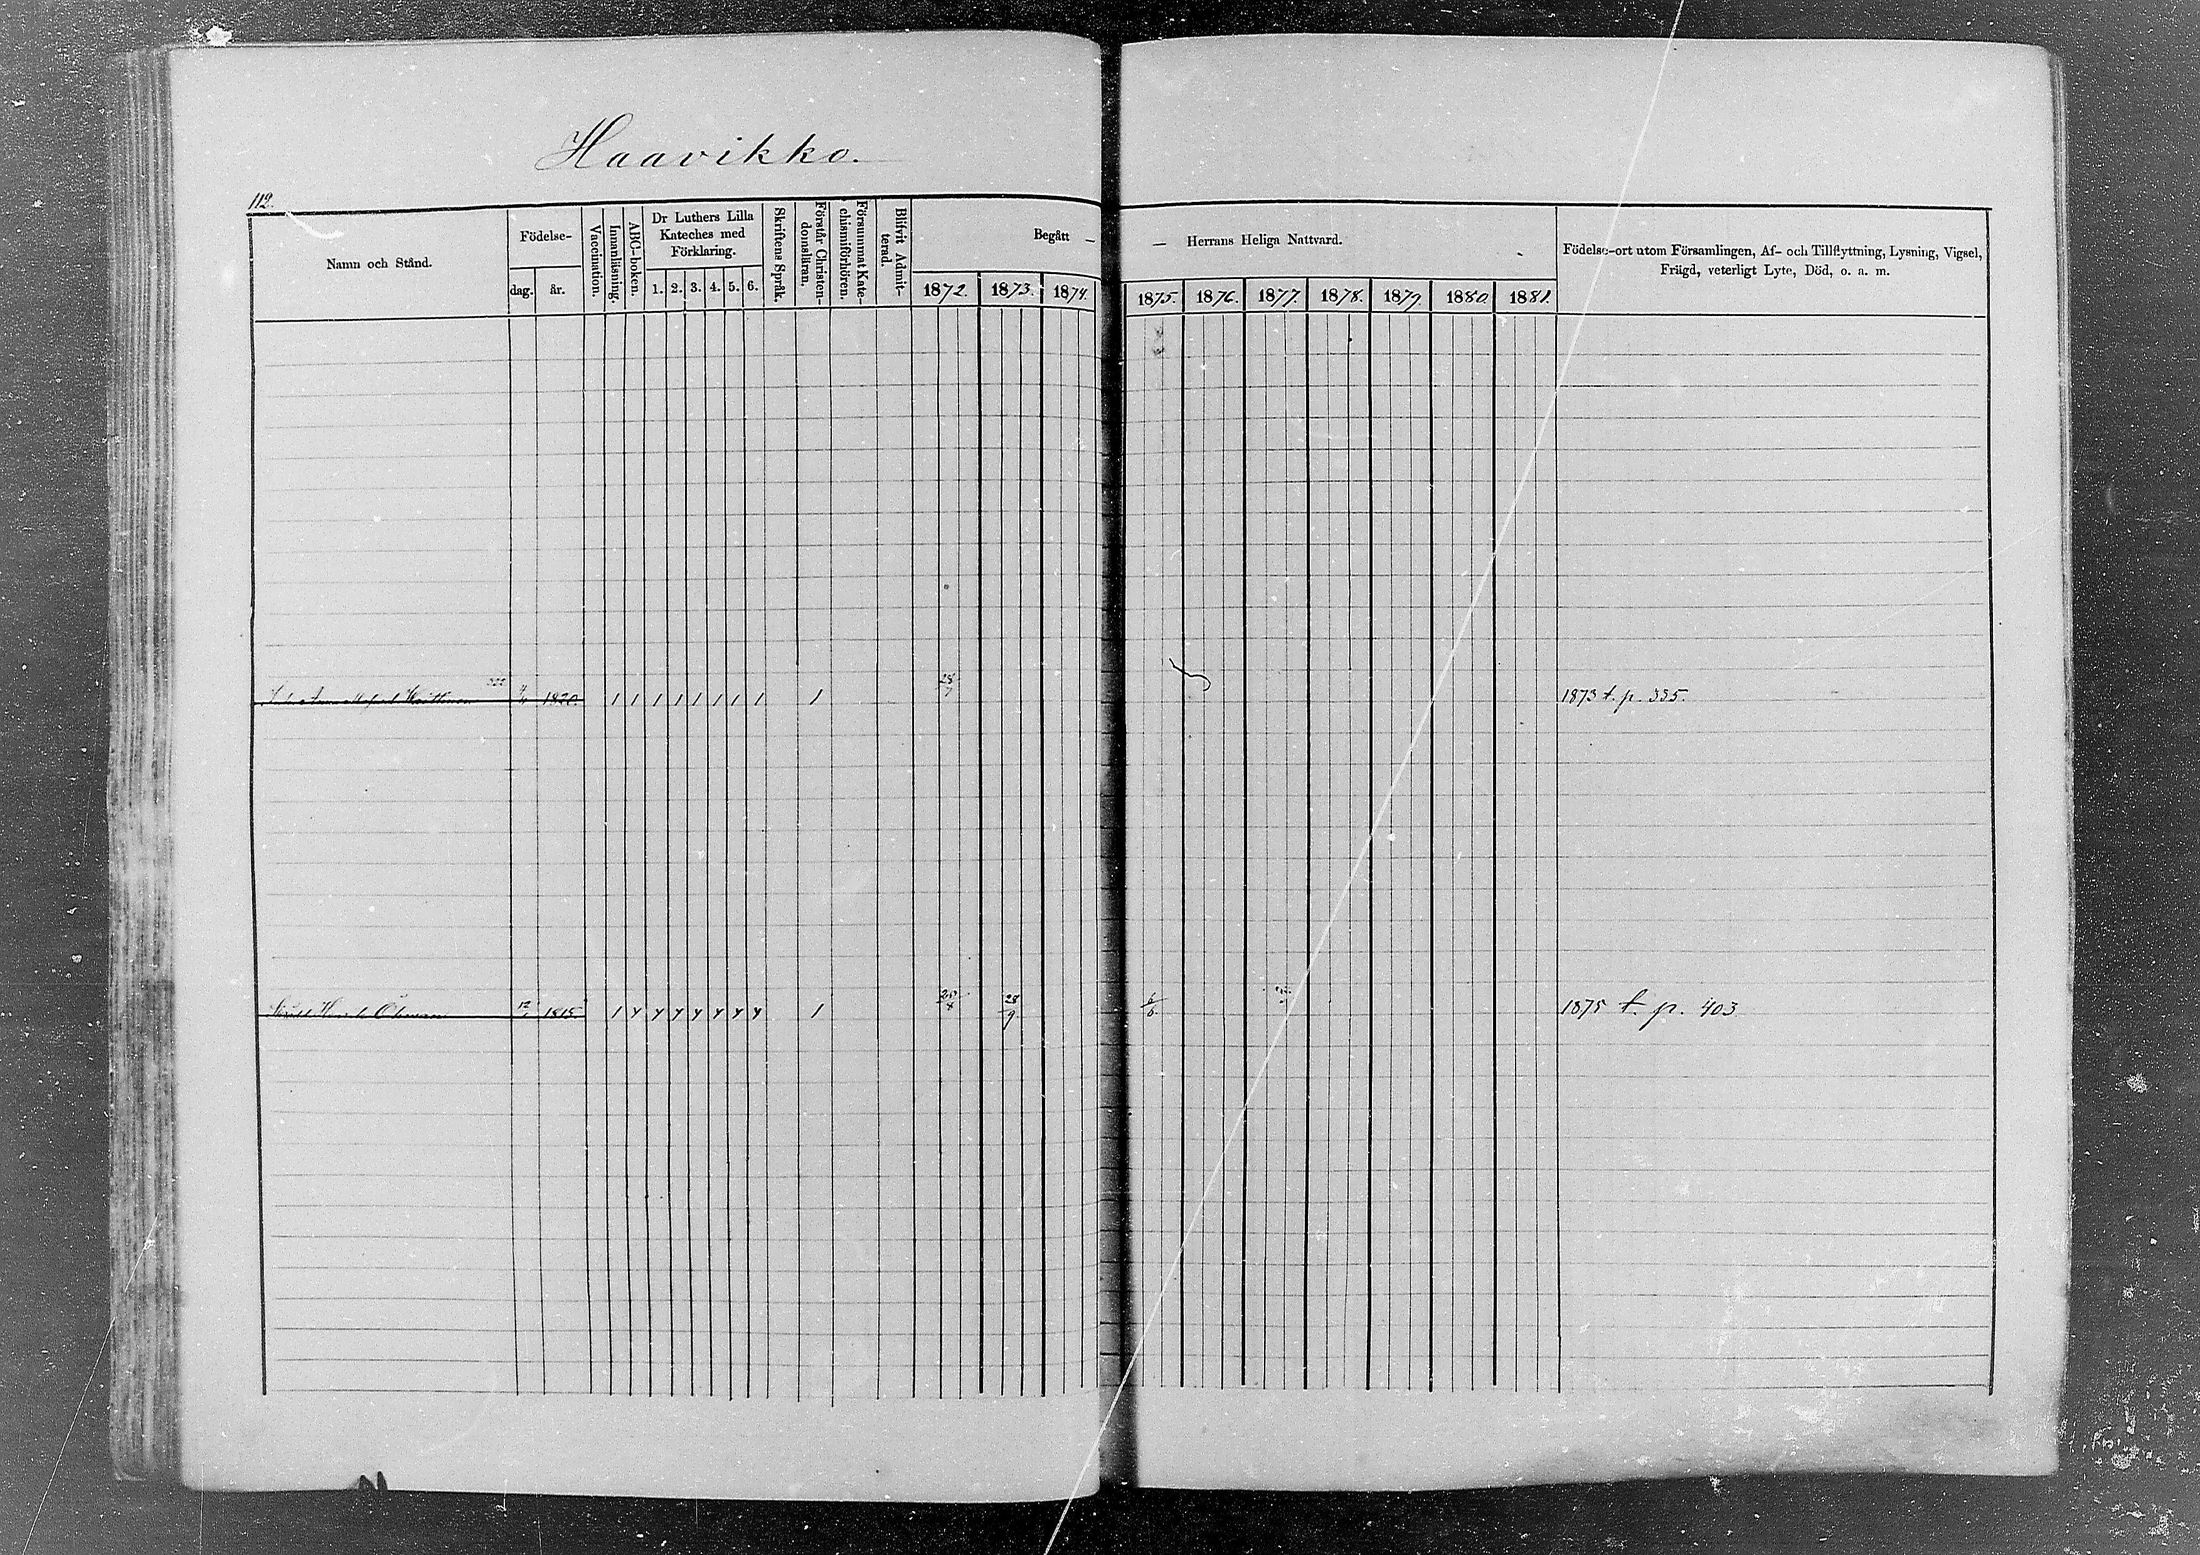 Haavikko.
112.
Namn och Stånd.
Födelse-
dag. år.
Vaccination.
Innanläsning.
ABC-boken.
Dr Luthers Lilla
Kateches med
Förklaring.
1. 2. 3. 4. 5. 6.
Skriftens Språk.
Förstår Christen-
domsläran.
Försummat Kate-
chismiförhören.
Blifvit Admit-
terad.
Begått —
— Herrans Heliga Nattvard.
1872. 1873. 1874. 1875. 1876. 1877. 1878. 1879 1880 1881.
Födelse-ort utom Församlingen, Af- och Tillflyttning, Lysning, Vigsel,
Frägd, veterligt Lyte, Död, o. a. m.
1820. 1 1 1 1 1 1 1 1 1 28/7 1873 t. p. 335.
Öhman 1815 1 1 28/9 6/6 1875 t. p. 403